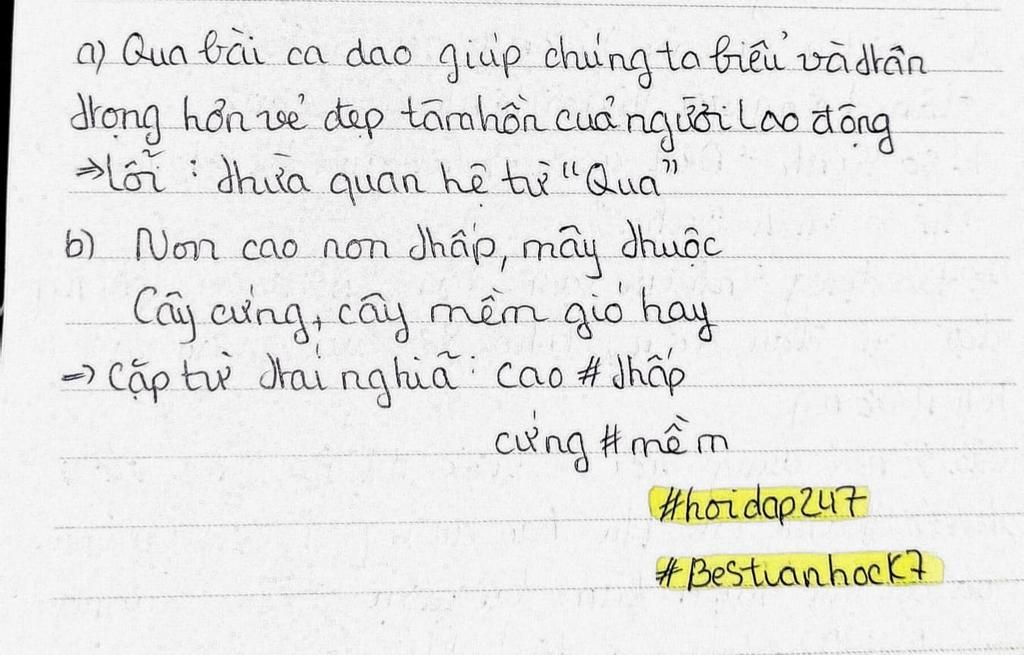 a) Qua bài ca dao giúp chúng ta hiểu và trân
trọng hơn vẻ đẹp tâm hồn của người lao động
⇒ Lỗi : thừa quan hệ từ "Qua"
b) Non cao non thấp, mây thuộc
Cây cứng, cây mềm gio hay
⇒ Cặp từ trái nghĩa : cao # thấp
cứng # mềm
#hoidap247
#Bestvanhock7